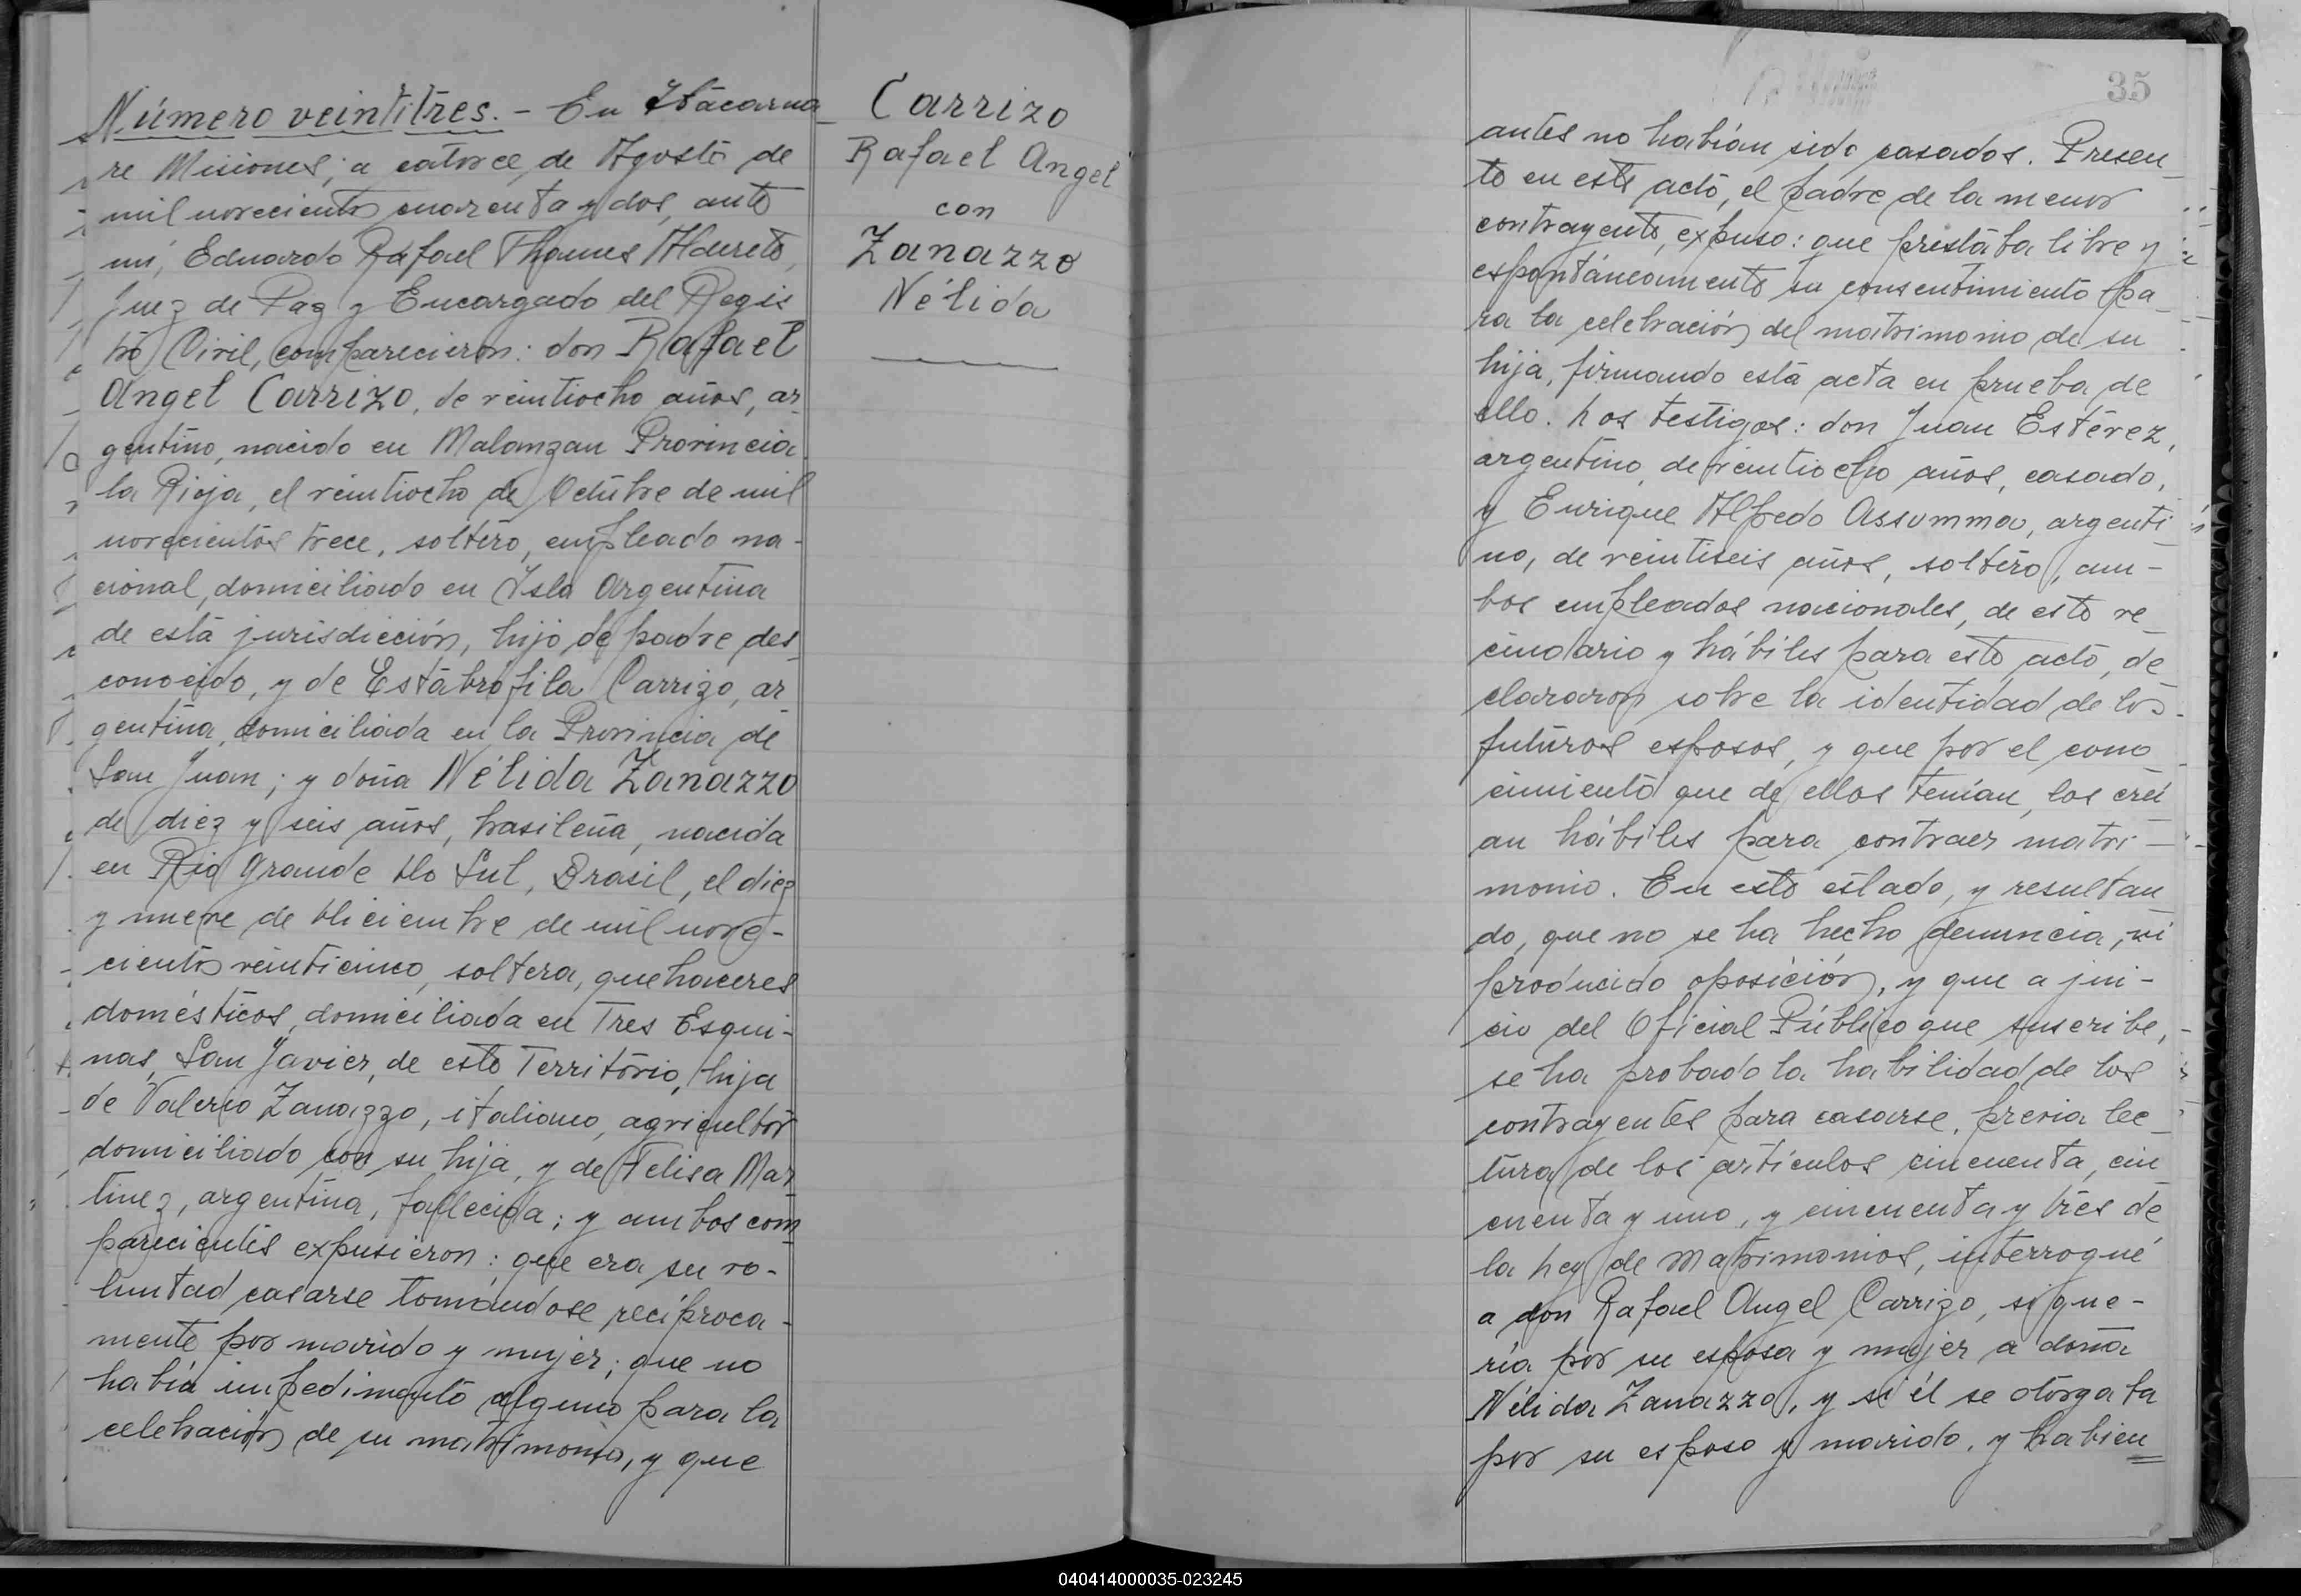 Número veintitres. - En Itacarua
re Misiones, a catorce de Agosto de
mil novecientos cuarenta y dos, ante
mi, Eduardo Rafael Thames Alderete,
Juez de Paz y Encargado del Regis
tro Civil, comparecieron: don Rafael
Angel Carrizo, de veintiocho años, ar_
gentino, nacido en Malanzan Provincia
la Rioja, el veintiocho de Octubre de mil
novecientos trece, soltero, empleado na-
cional, domiciliado en Isla Argentina
de esta jurisdicción, hijo de padre des_
conocido, y de Estabrofila Carrizo, ar_
gentina, domiciliada en la Provincia de
San Juan; y doña Nélida Zanazzo
de diez y seis años, brasileña, nacida
en Rio Grande Do Sul, Brasil, el diez
y nueve de Diciembre de mil nove-
cientos veinticinco, soltera, quehaceres
domésticos, domiciliada en Tres Esqui-
nas, San Javier, de este Territorio, hija
de Valerio Zanazzo, italiano, agricultor
domiciliado con su hija, y de Felisa Mar_
tinez, argentina, fallecida; y ambos com_
parecientes expusieron: que era su vo-
luntad casarse tomándose recíproca-
mente por marido y mujer; que no
había impedimento alguno para la
celebración de su matrimonio, y que
Carrizo
Rafael Angel
con
Zanazzo
Nélida
35
antes no habían sido casados. Presen_
te en este acto, el padre de la menor
contrayente, expuso: que prestaba libre y
espontáneamente su consentimiento pa_
ra la celebración del matrimonio de su
hija, firmando esta acta en prueba de
ello. Los testigos: don Juan Estévez,
argentino, de veintiocho años, casado,
y Enrique Alfredo Assumma, argenti_
no, de veintiseis años, soltero, am-
bos empleados nacionales, de este ve_
cindario y hábiles para este acto, de_
clararon sobre la identidad de los
futuros esposos, y que por el cono_
cimiento que de ellos tenían, los creí
an hábiles para contraer matri-
monio. En este estado, y resultan
do, que no se ha hecho denuncia, ni
producido oposición, y que a jui-
cio del Oficial Público que suscribe,
se ha probado la habilidad de los
contrayentes para casarse, previa lec_
tura de los artículos cincuenta, cin
cuenta y uno, y cincuenta y tres de
la Ley de Matrimonios, interrogué
a don Rafael Angel Carrizo, si que-
ría por su esposa y mujer a doña
Nélida Zanazzo, y si él se otorgaba
por su esposo y marido, y habien
040414000035-023245